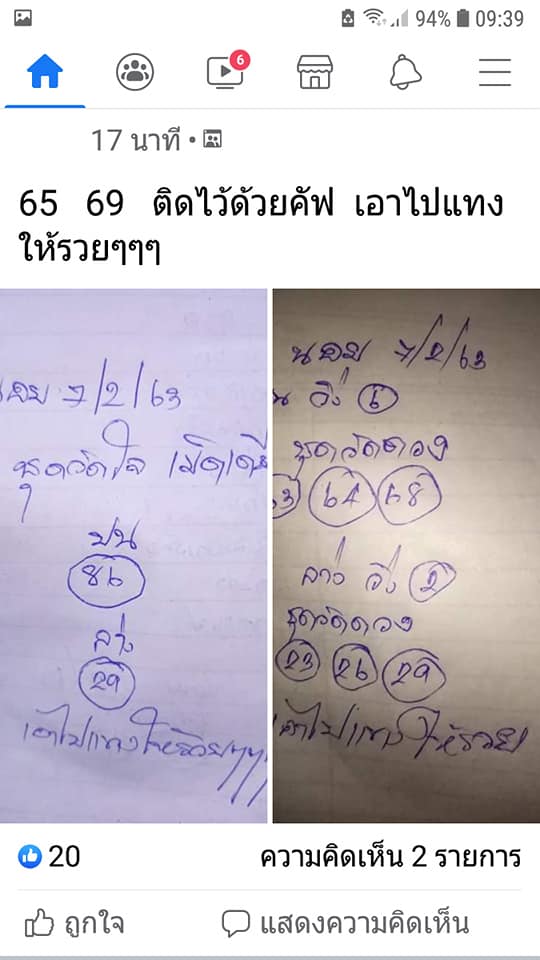 94% 09:39
6
17 นาที •
65 69 ติดไว้ด้วยคัฟ เอาไปแทง
ให้รวยๆๆๆ
7/2/63
ชุดวัดใจ
บน
86
ล่าง
29
เอาไปแทงให้รวยๆๆๆ
7/2/63
วิ่ง 6
ชุดวัดดวง
63 64 68
ล่าง วิ่ง 2
ชุดวัดดวง
23 26 29
เอาไปแทงให้รวย
20
ความคิดเห็น 2 รายการ
ถูกใจ
แสดงความคิดเห็น